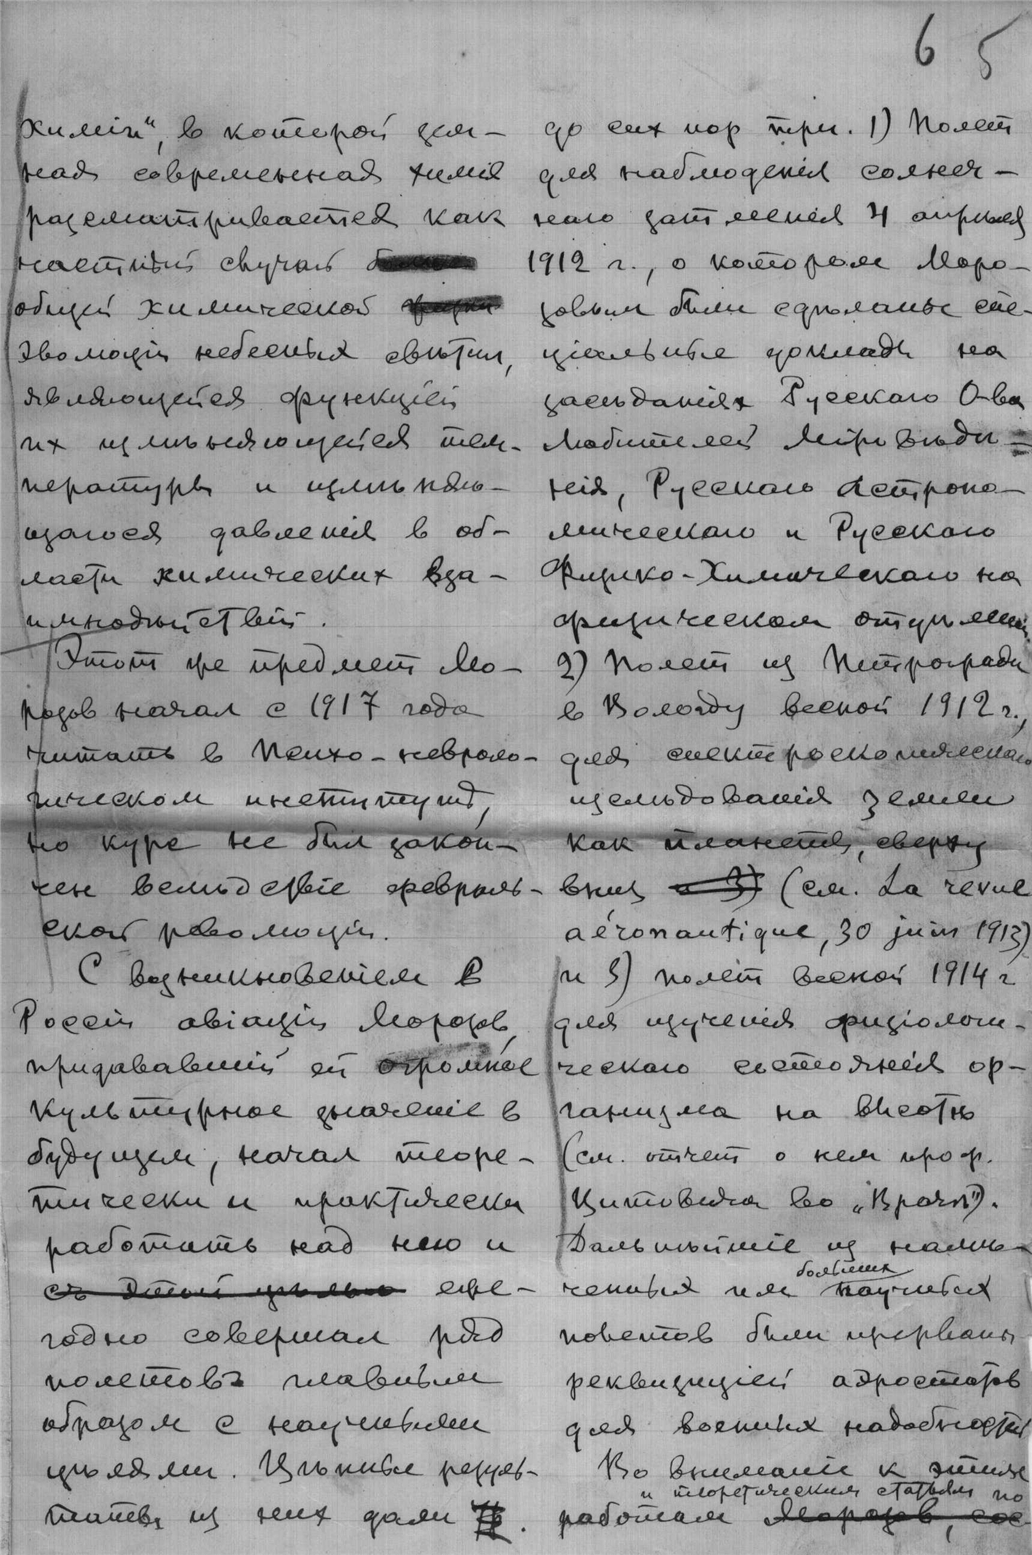 6 5
химіи", в которой зем-
ная современная химія
разсматривается как
частный случай
общей химической
эволюціи небесных свѣтил,
являющейся функціей
их измѣняющейся тем-
пературы и измѣняю-
щагося давленія в об-
ласти химических вза-
имнодѣйствій.
Этот же предмет Мо-
розов начал с 1917 года
читать в Психо-невроло-
гическом институтѣ,
но курс не был закон-
чен вслѣдствіе февраль-
ской революціи.
С возникновеніем в
Россіи авіаціи Морозов,
придававшій ей огромное
культурное значеніе в
будущем, начал теоре-
тически и практически
работать над нею и
съ этой цѣлью еже-
годно совершал ряд
полетовъ главным
образом с научными
цѣлями. Цѣнные резуль-
таты из них дали
до сих пор три. 1) Полет
для наблюденія солнеч-
наго затменія 4 апрѣля
1912 г., о котором Моро-
зовым были сдѣланы спе-
ціальные доклады на
засѣданіях Русскаго О-ва
Любителей Міровѣдѣ-
нія, Русскаго Астроно-
мическаго и Русскаго
Физико-Химическаго на
физическом отдѣленіи.
2) Полет из Петрограда
в Вологду весной 1912 г.,
для спектроскопическаго
изслѣдованія земли
как планеты, сверху
вниз и 3) (см. La revue
aéronautique, 30 juin 1913)
и 3) полет весной 1914 г
для изученія физіологи-
ческаго состоянія ор-
ганизма на высотѣ
(см. отчет о нем проф.
Цитовича во „Врачѣ").
Дальнѣйшіе из намѣ-
больших
ченных им научных
полетов были прерваны
реквизиціей аэростатов
для военных надобностей
Во вниманіе к этим
и теоретическим статьям по
работам Морозов, сос-